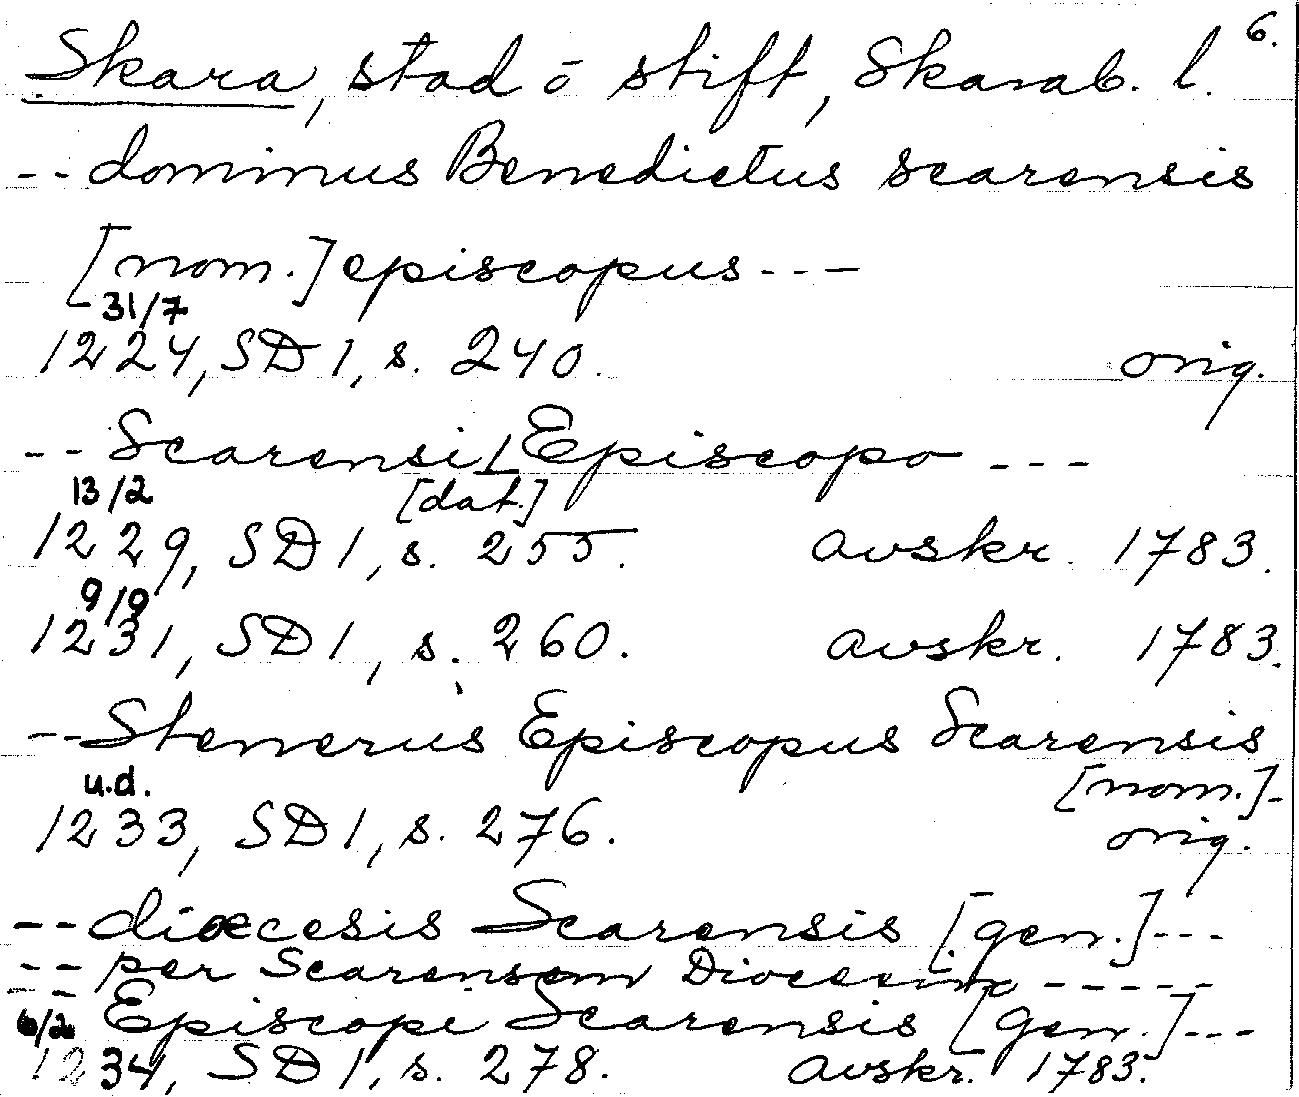 6.
Skara, stad o stift, Skarab. l.
-- dominus Benedictus scarensis
[nom.] episcopus ---
31/7
1224, SD 1, s. 240. orig.
-- Scarensi Episcopo ---
13/2 [dat.]
1229, SD 1, s. 255. avskr. 1783.
9/9
1231, SD 1, s. 260. avskr. 1783.
-- Stenerus Episcopus Scarensis
u.d. [nom.]-
1233, SD 1, s. 276. orig.
-- diœcesis Scarensis [gen.] ---
-- per Scarensem Diocesim -----
-- Episcopi Scarensis [gen.] ---
6/2
1234, SD 1, s. 278. avskr. 1783.